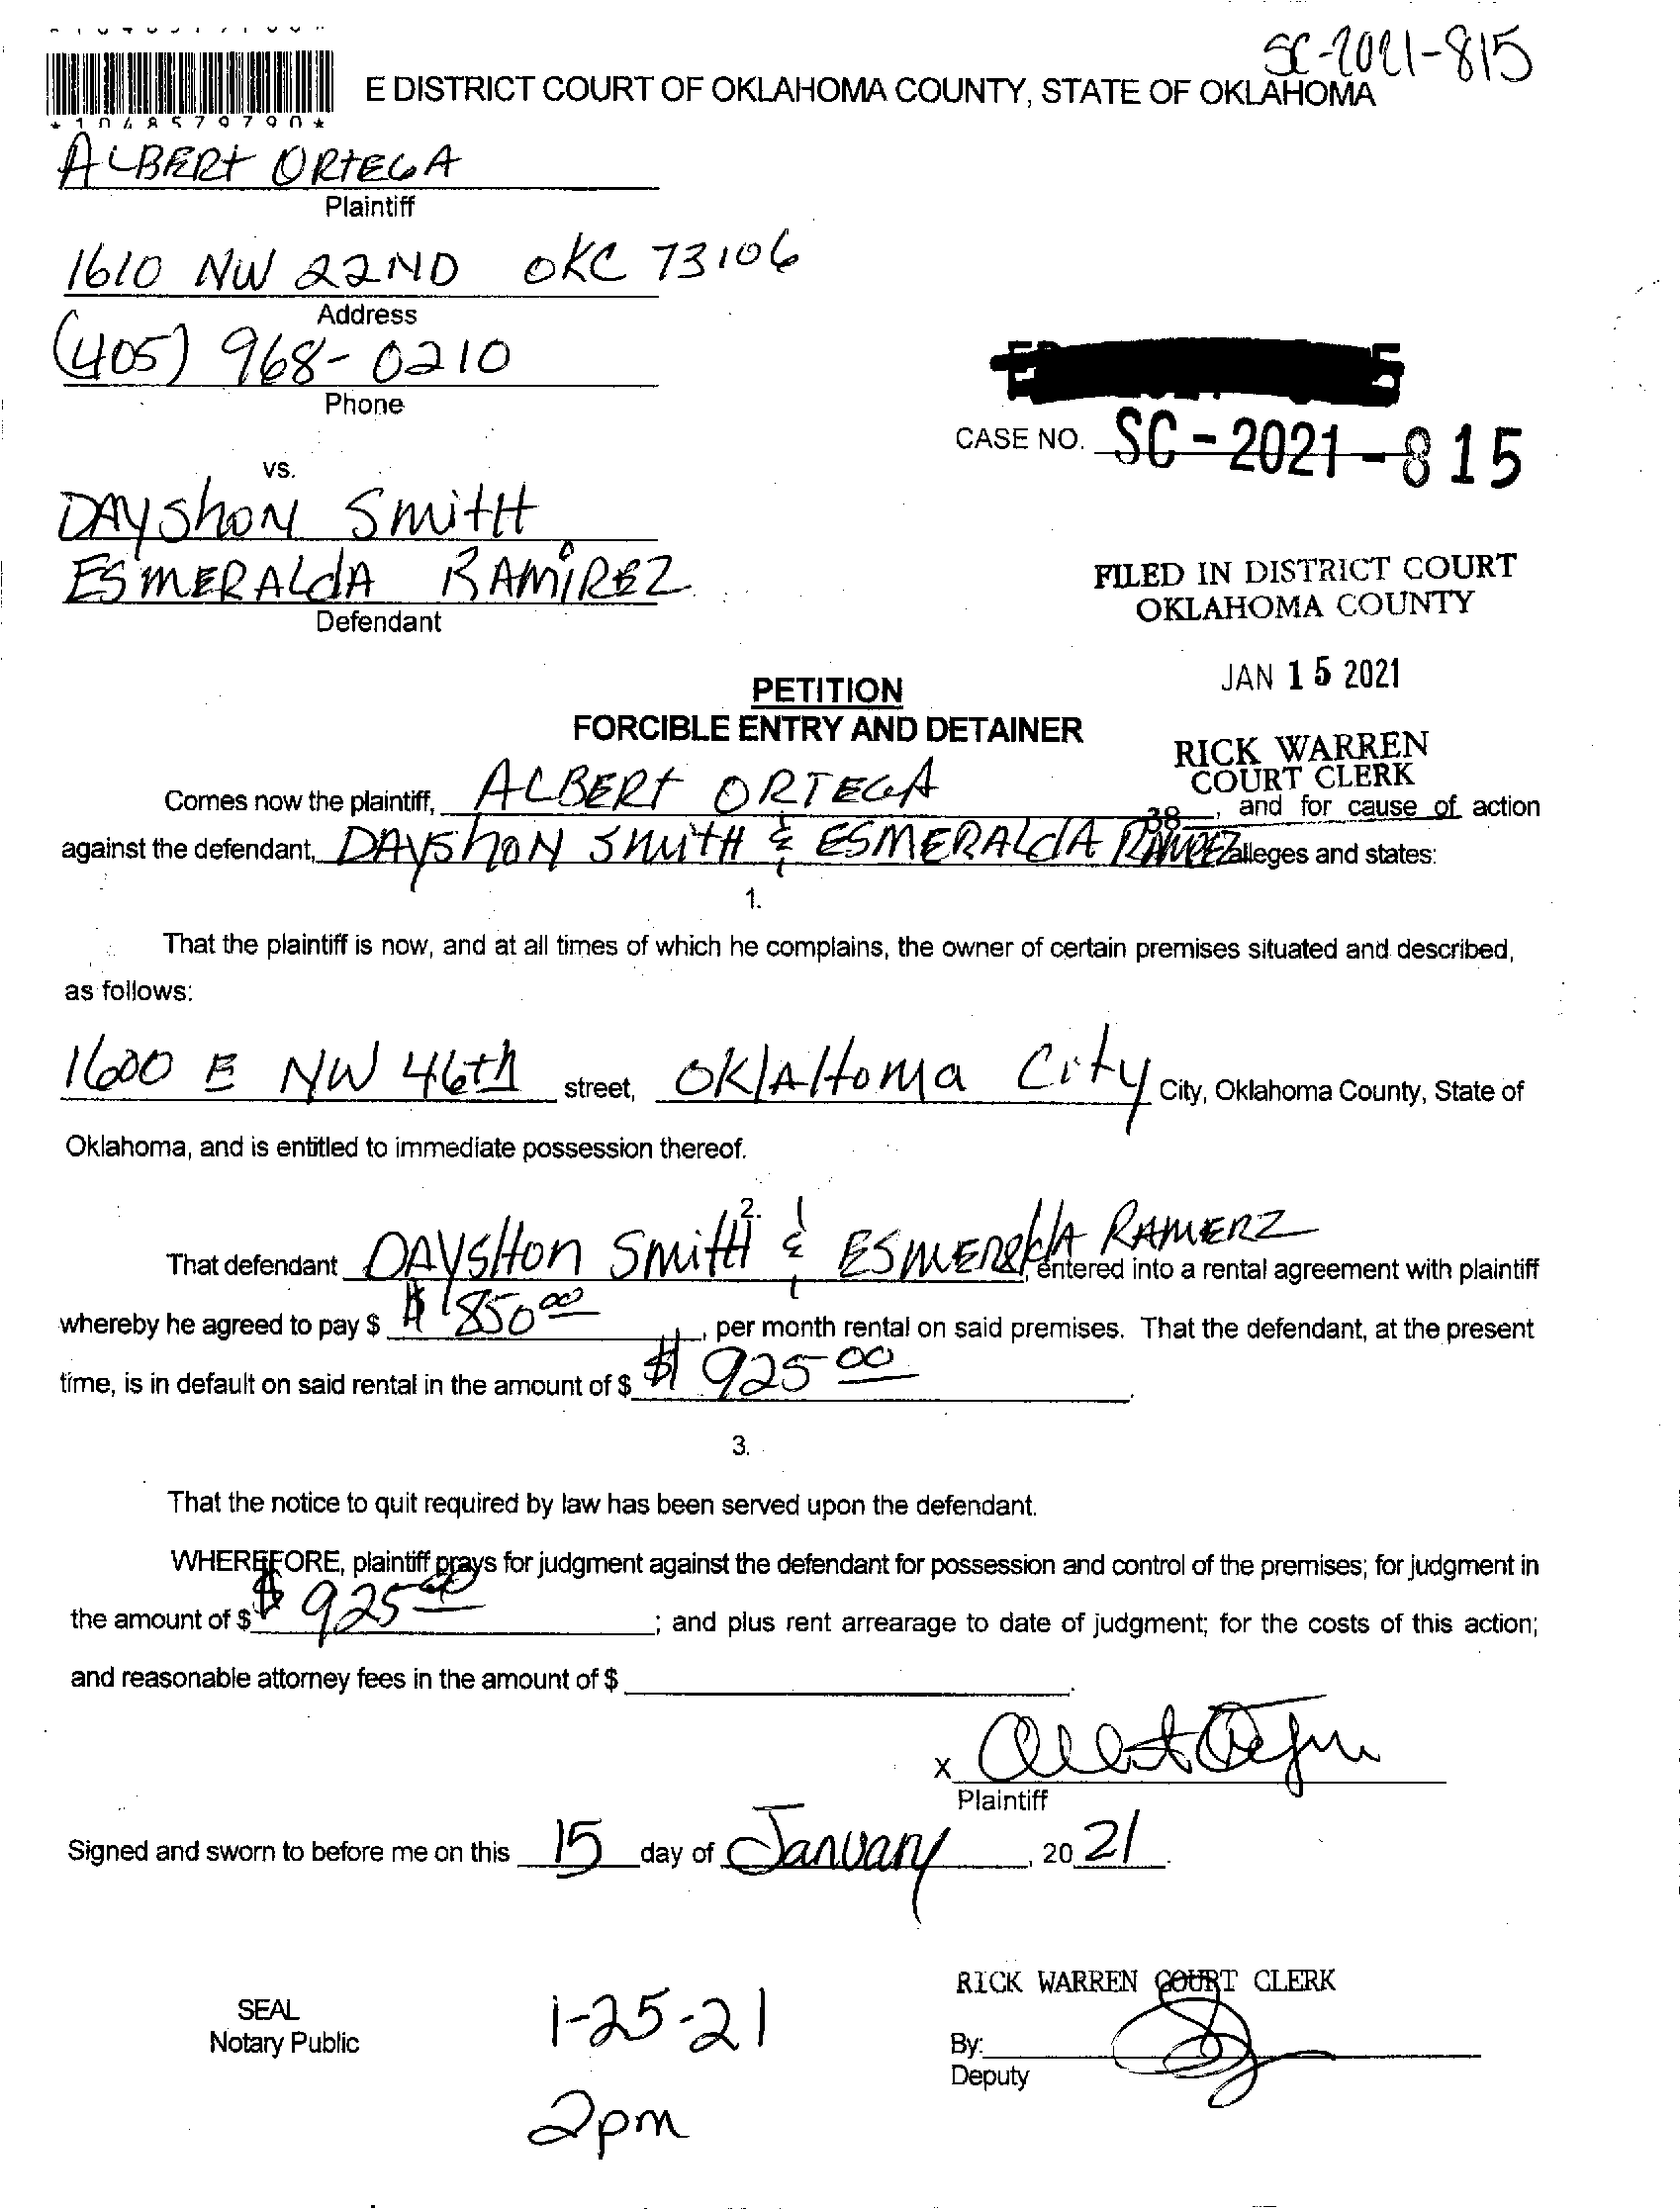 SC-2021-815
E DISTRICT COURT OF OKLAHOMA COUNTY, STATE OF OKLAHOMA
*1048579790*
ALBERT ORTEGA
Plaintiff
1610 NW 22ND OKC 73106
Address
(405) 968-0210
Phone
CASE NO. SC-2021-815
vs.
DAYSHON SMITH
ESMERALDA RAMIREZ
Defendant
FILED IN DISTRICT COURT
OKLAHOMA COUNTY
JAN 15 2021
PETITION
FORCIBLE ENTRY AND DETAINER
RICK WARREN
COURT CLERK
38
Comes now the plaintiff, ALBERT ORTEGA, and for cause of action
against the defendant, DAYSHON SMITH & ESMERALDA RAMIREZ alleges and states:
1.
That the plaintiff is now, and at all times of which he complains, the owner of certain premises situated and described,
as follows:
1600 E NW 46th street, OKLAHOMA City City, Oklahoma County, State of
Oklahoma, and is entitled to immediate possession thereof.
2.
That defendant DAYSHON SMITH & ESMERELDA RAMERZ, entered into a rental agreement with plaintiff
whereby he agreed to pay $ $850.00, per month rental on said premises. That the defendant, at the present
time, is in default on said rental in the amount of $ $925.00.
3.
That the notice to quit required by law has been served upon the defendant.
WHEREFORE, plaintiff prays for judgment against the defendant for possession and control of the premises; for judgment in
the amount of $ $925.00; and plus rent arrearage to date of judgment; for the costs of this action;
and reasonable attorney fees in the amount of $.
X
Plaintiff
Signed and sworn to before me on this 15 day of January, 2021.
RICK WARREN COURT CLERK
SEAL
Notary Public
1-25-21
2pm
By:
Deputy